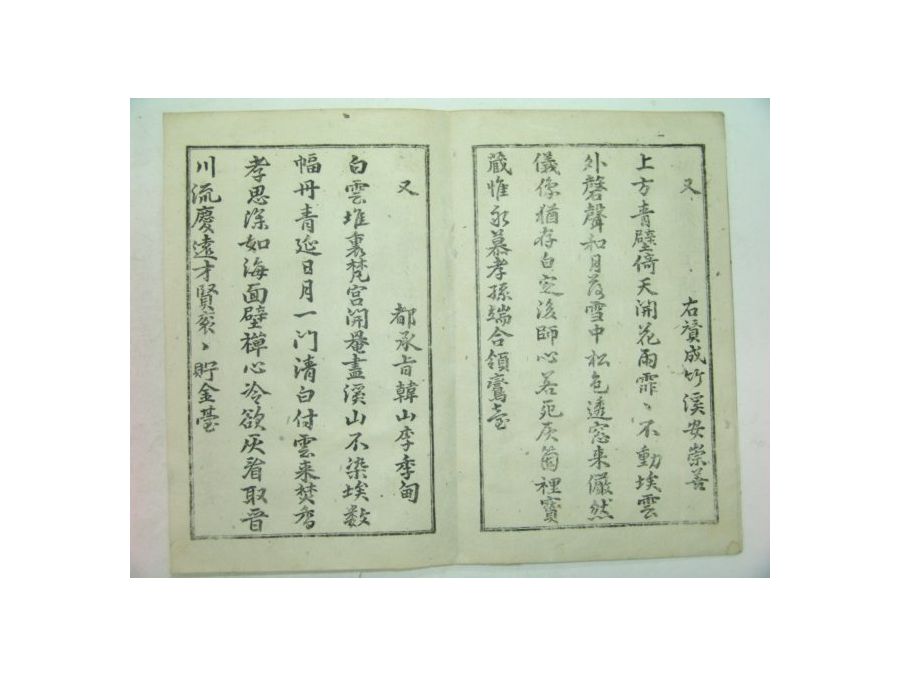 又
右贊成竹溪安崇善
上方青壁倚天開花雨霏〻不動埃雲
外磬聲和月落雪中松色透窓来儼然
儀像猶存白定後師心若死灰箇裡寶
蔵惟永慕孝孫端合領鸞臺
又
都承旨韓山李季甸
白雲堆裏梵宫開罨畫溪山不染埃数
幅丹青延日月一門清白付雲来焚香
孝思深如海面壁禅心冷欲灰看取晉
川流慶遠才賢衮〻貯金䑓